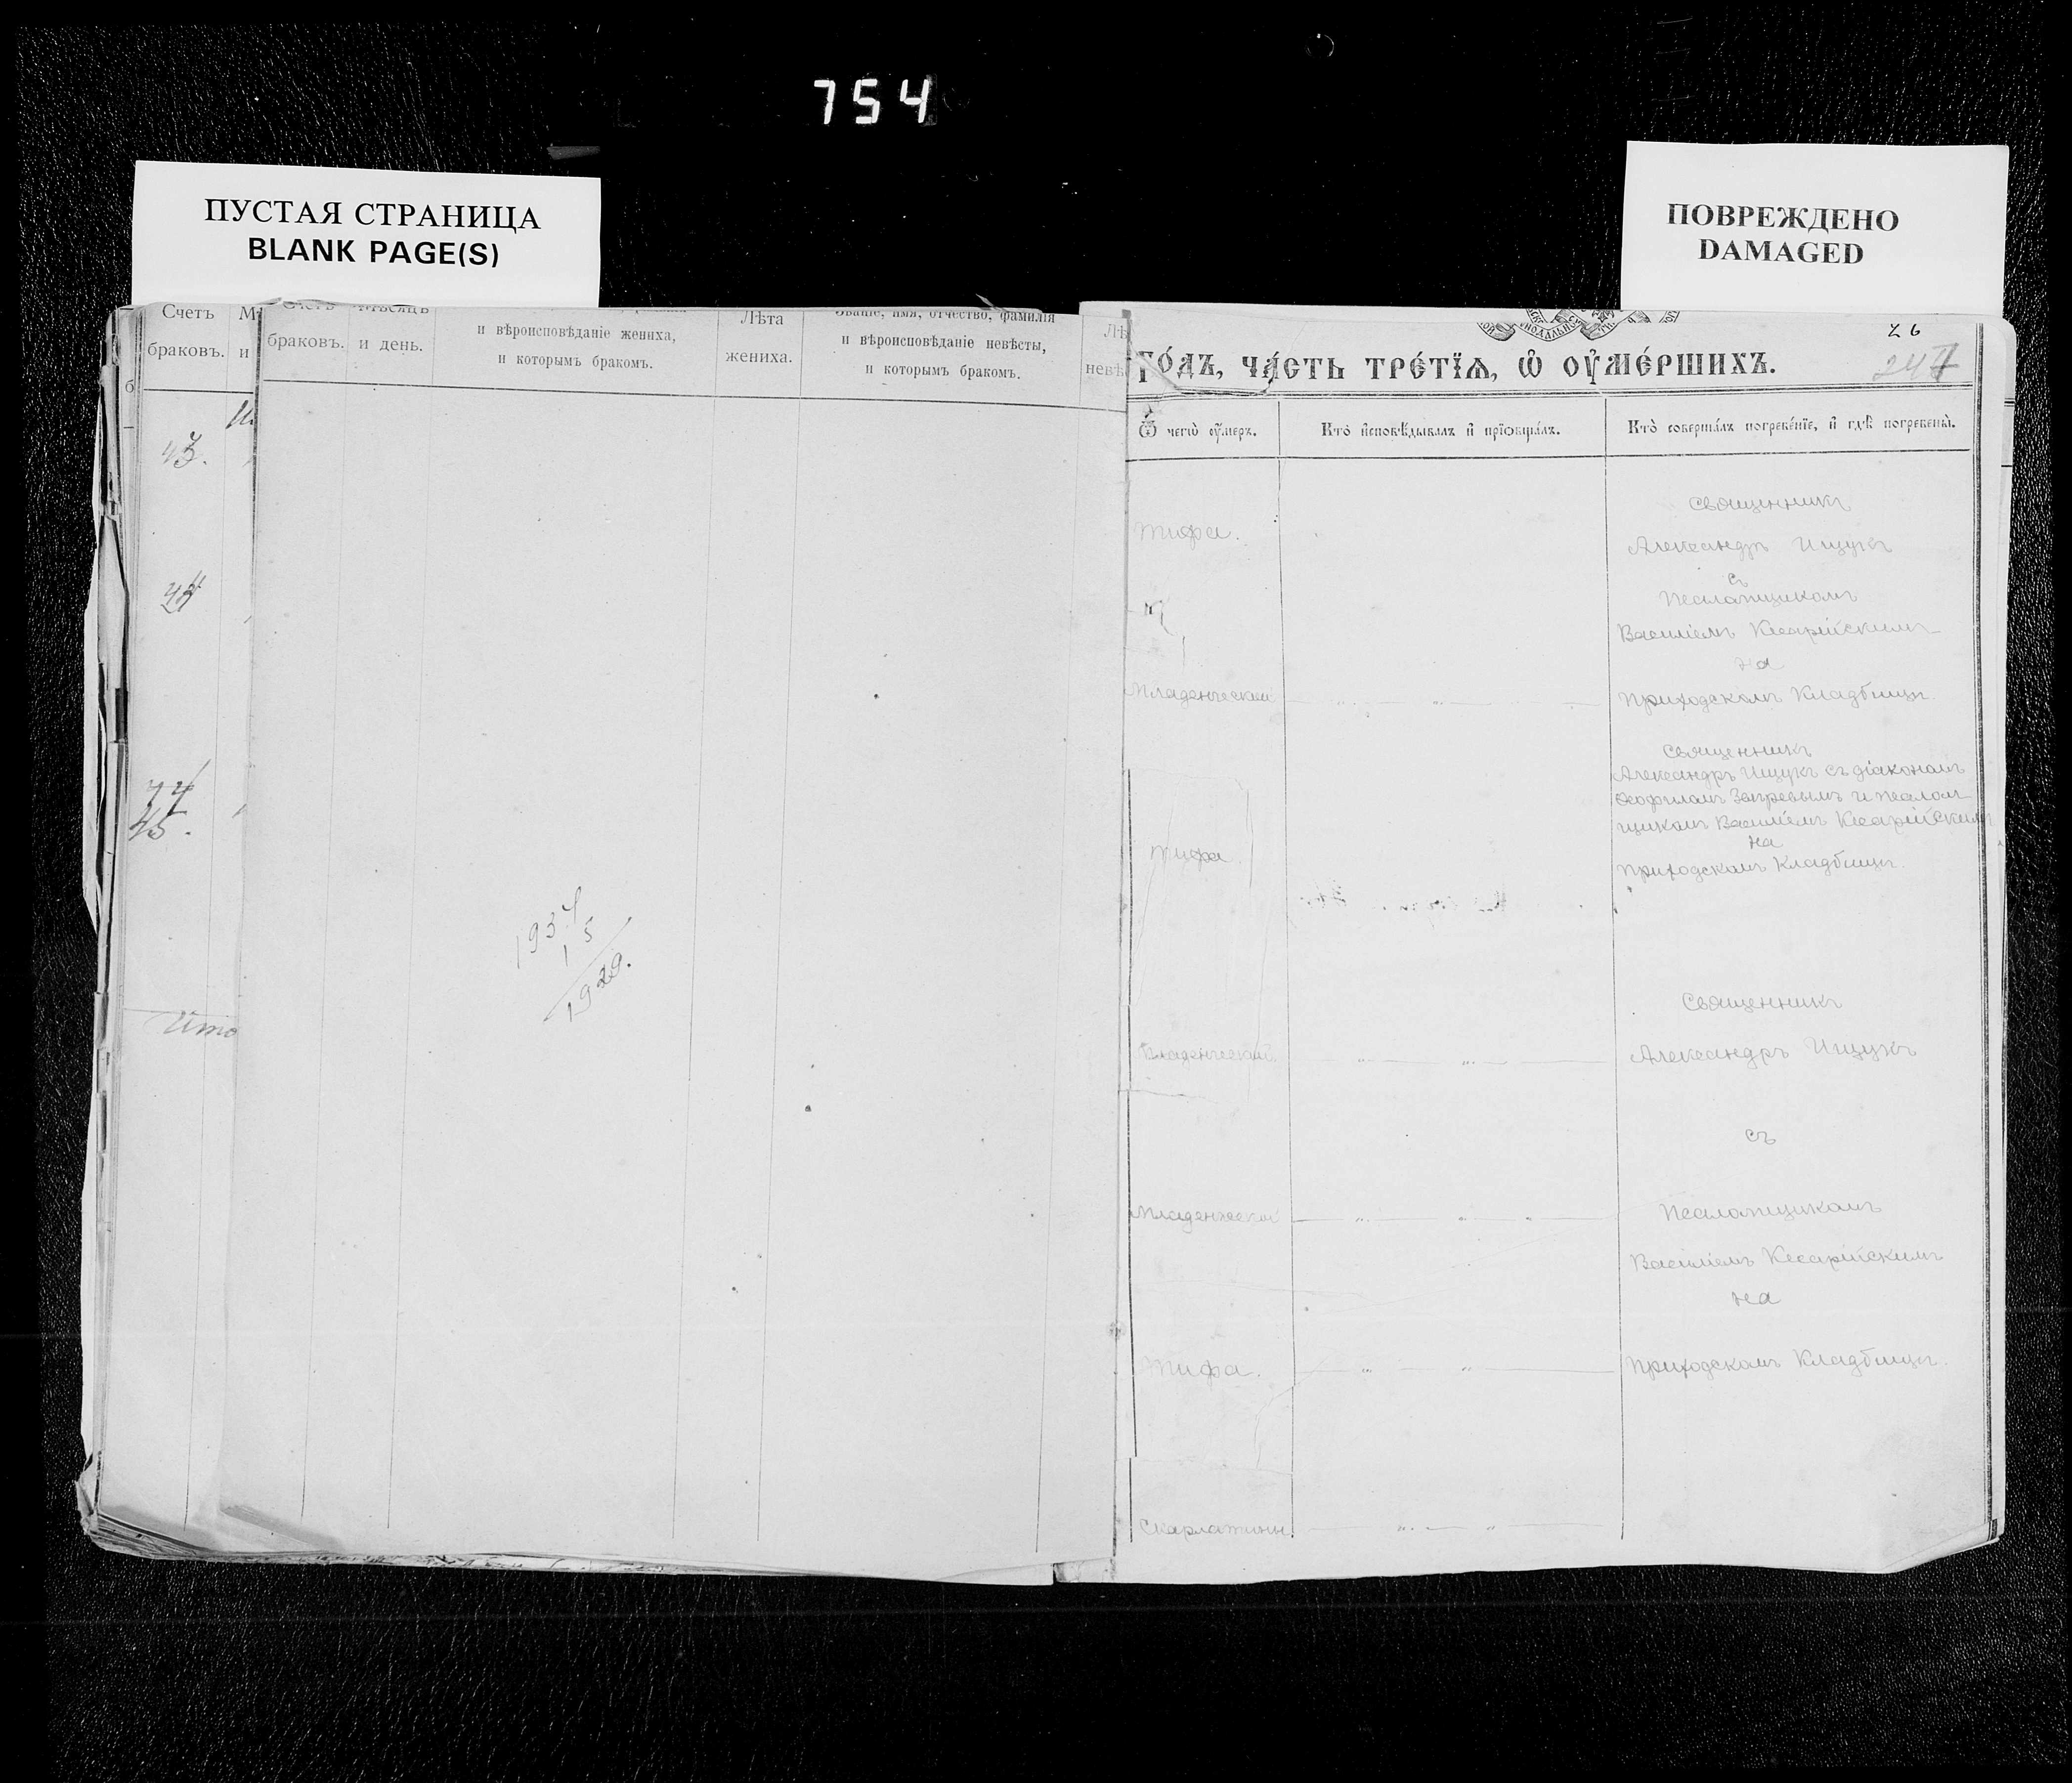 754
ПУСТАЯ СТРАНИЦА
BLANK PAGE(S)
ПОВРЕЖДЕНО
DAMAGED
Счетъ
браковъ.
и
43.
45.
Ито
браковъ.
и день.
и вѣроисповѣданіе жениха,
и которымъ бракомъ.
Лѣта
жениха.
Званіе, имя, отчество, фамилія
и вѣроисповѣданіе невѣсты,
и которымъ бракомъ.
Лѣ
невѣ
1934
15
1929.
26
247
го́дъ, ча́сть тре́тїѧ, ѡ҆ ᲂу҆ме́ршихъ.
Ѿ чегѡ̀ ᲂу҆́меръ.
Кто̀ и҆сповѣ́дывалъ и҆ прїѡбща́лъ.
Кто̀ соверша́лъ погребе́нїе, и҆ гдѣ̀ погребены̀.
Тифа.
Священникъ
Александръ Ищукъ
съ
Псаломщикомъ
Василіемъ Кесарійскимъ
на
Приходскомъ Кладбищѣ.
Младенческой
Священникъ
Александръ Ищукъ съ діакономъ
Ѳеофиломъ Запревымъ и псалом
щикомъ Василіемъ Кесарійскимъ
на
приходскомъ Кладбищѣ.
Тифа.
Священникъ
Младенческой.
Александръ Ищукъ
съ
Младенческой
Псаломщикомъ
Василіемъ Кесарійскимъ
на
Тифа.
Приходскомъ Кладбищѣ.
Скарлатины.